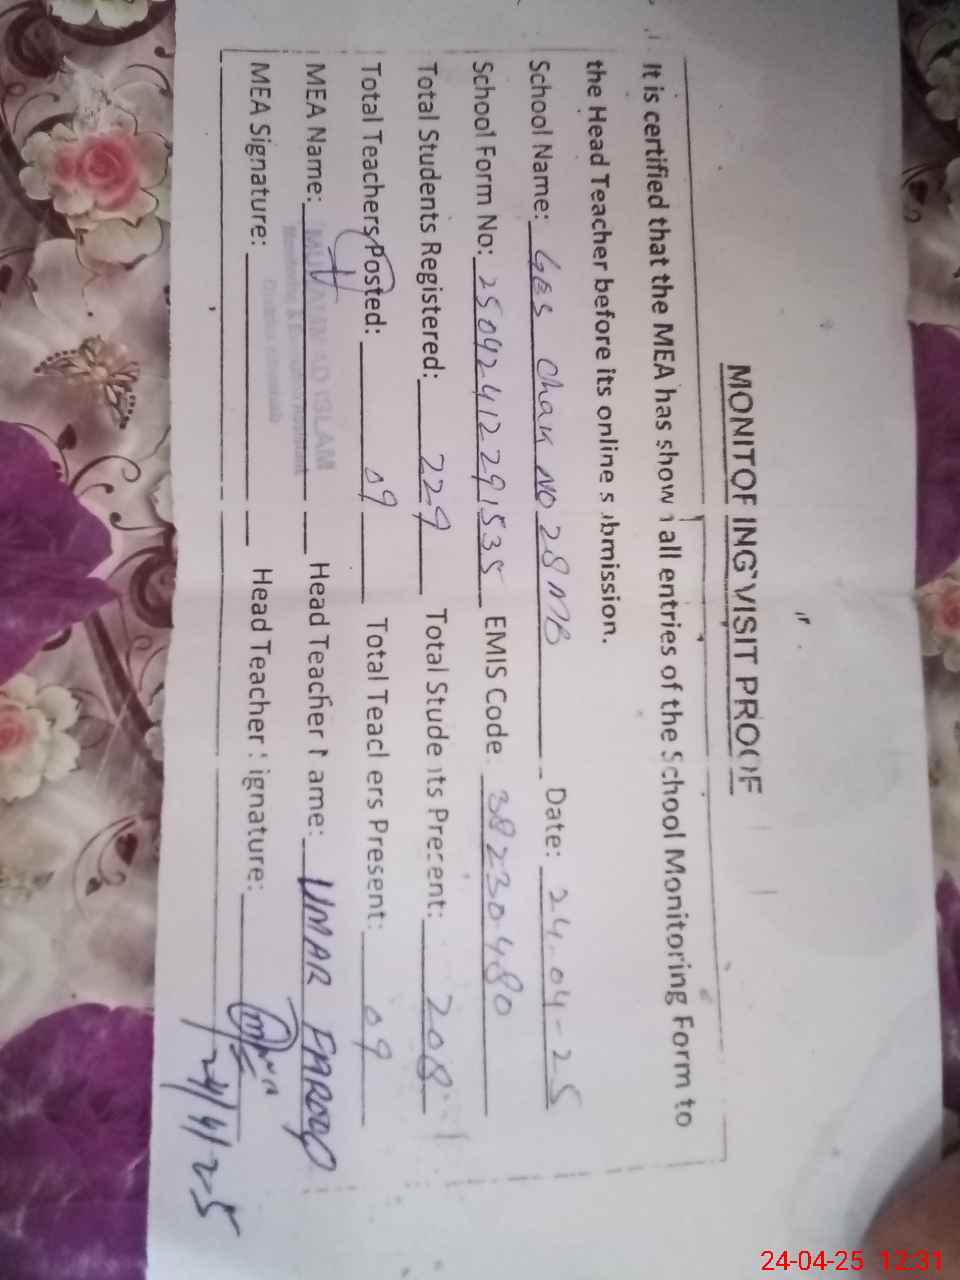 MONITOF ING VISIT PROOF
It is certified that the MEA has show all entries of the School Monitoring Form to
the Head Teacher before its online s bmission.
School Name: GES Chak NO 28 MB Date: 24-04-25
School Form No: 25042412291535 EMIS Code: 38230480
Total Students Registered: 229 Total Stude its Precent: 208
Total Teachers Posted: 09 Total Teacl ers Present: 09
MEA Name: MUHAMMAD ISLAM Head Teacher N ame: UMAR FAROOQ
MEA Signature: Head Teacher S ignature:
24/4/25
24-04-25 12:31